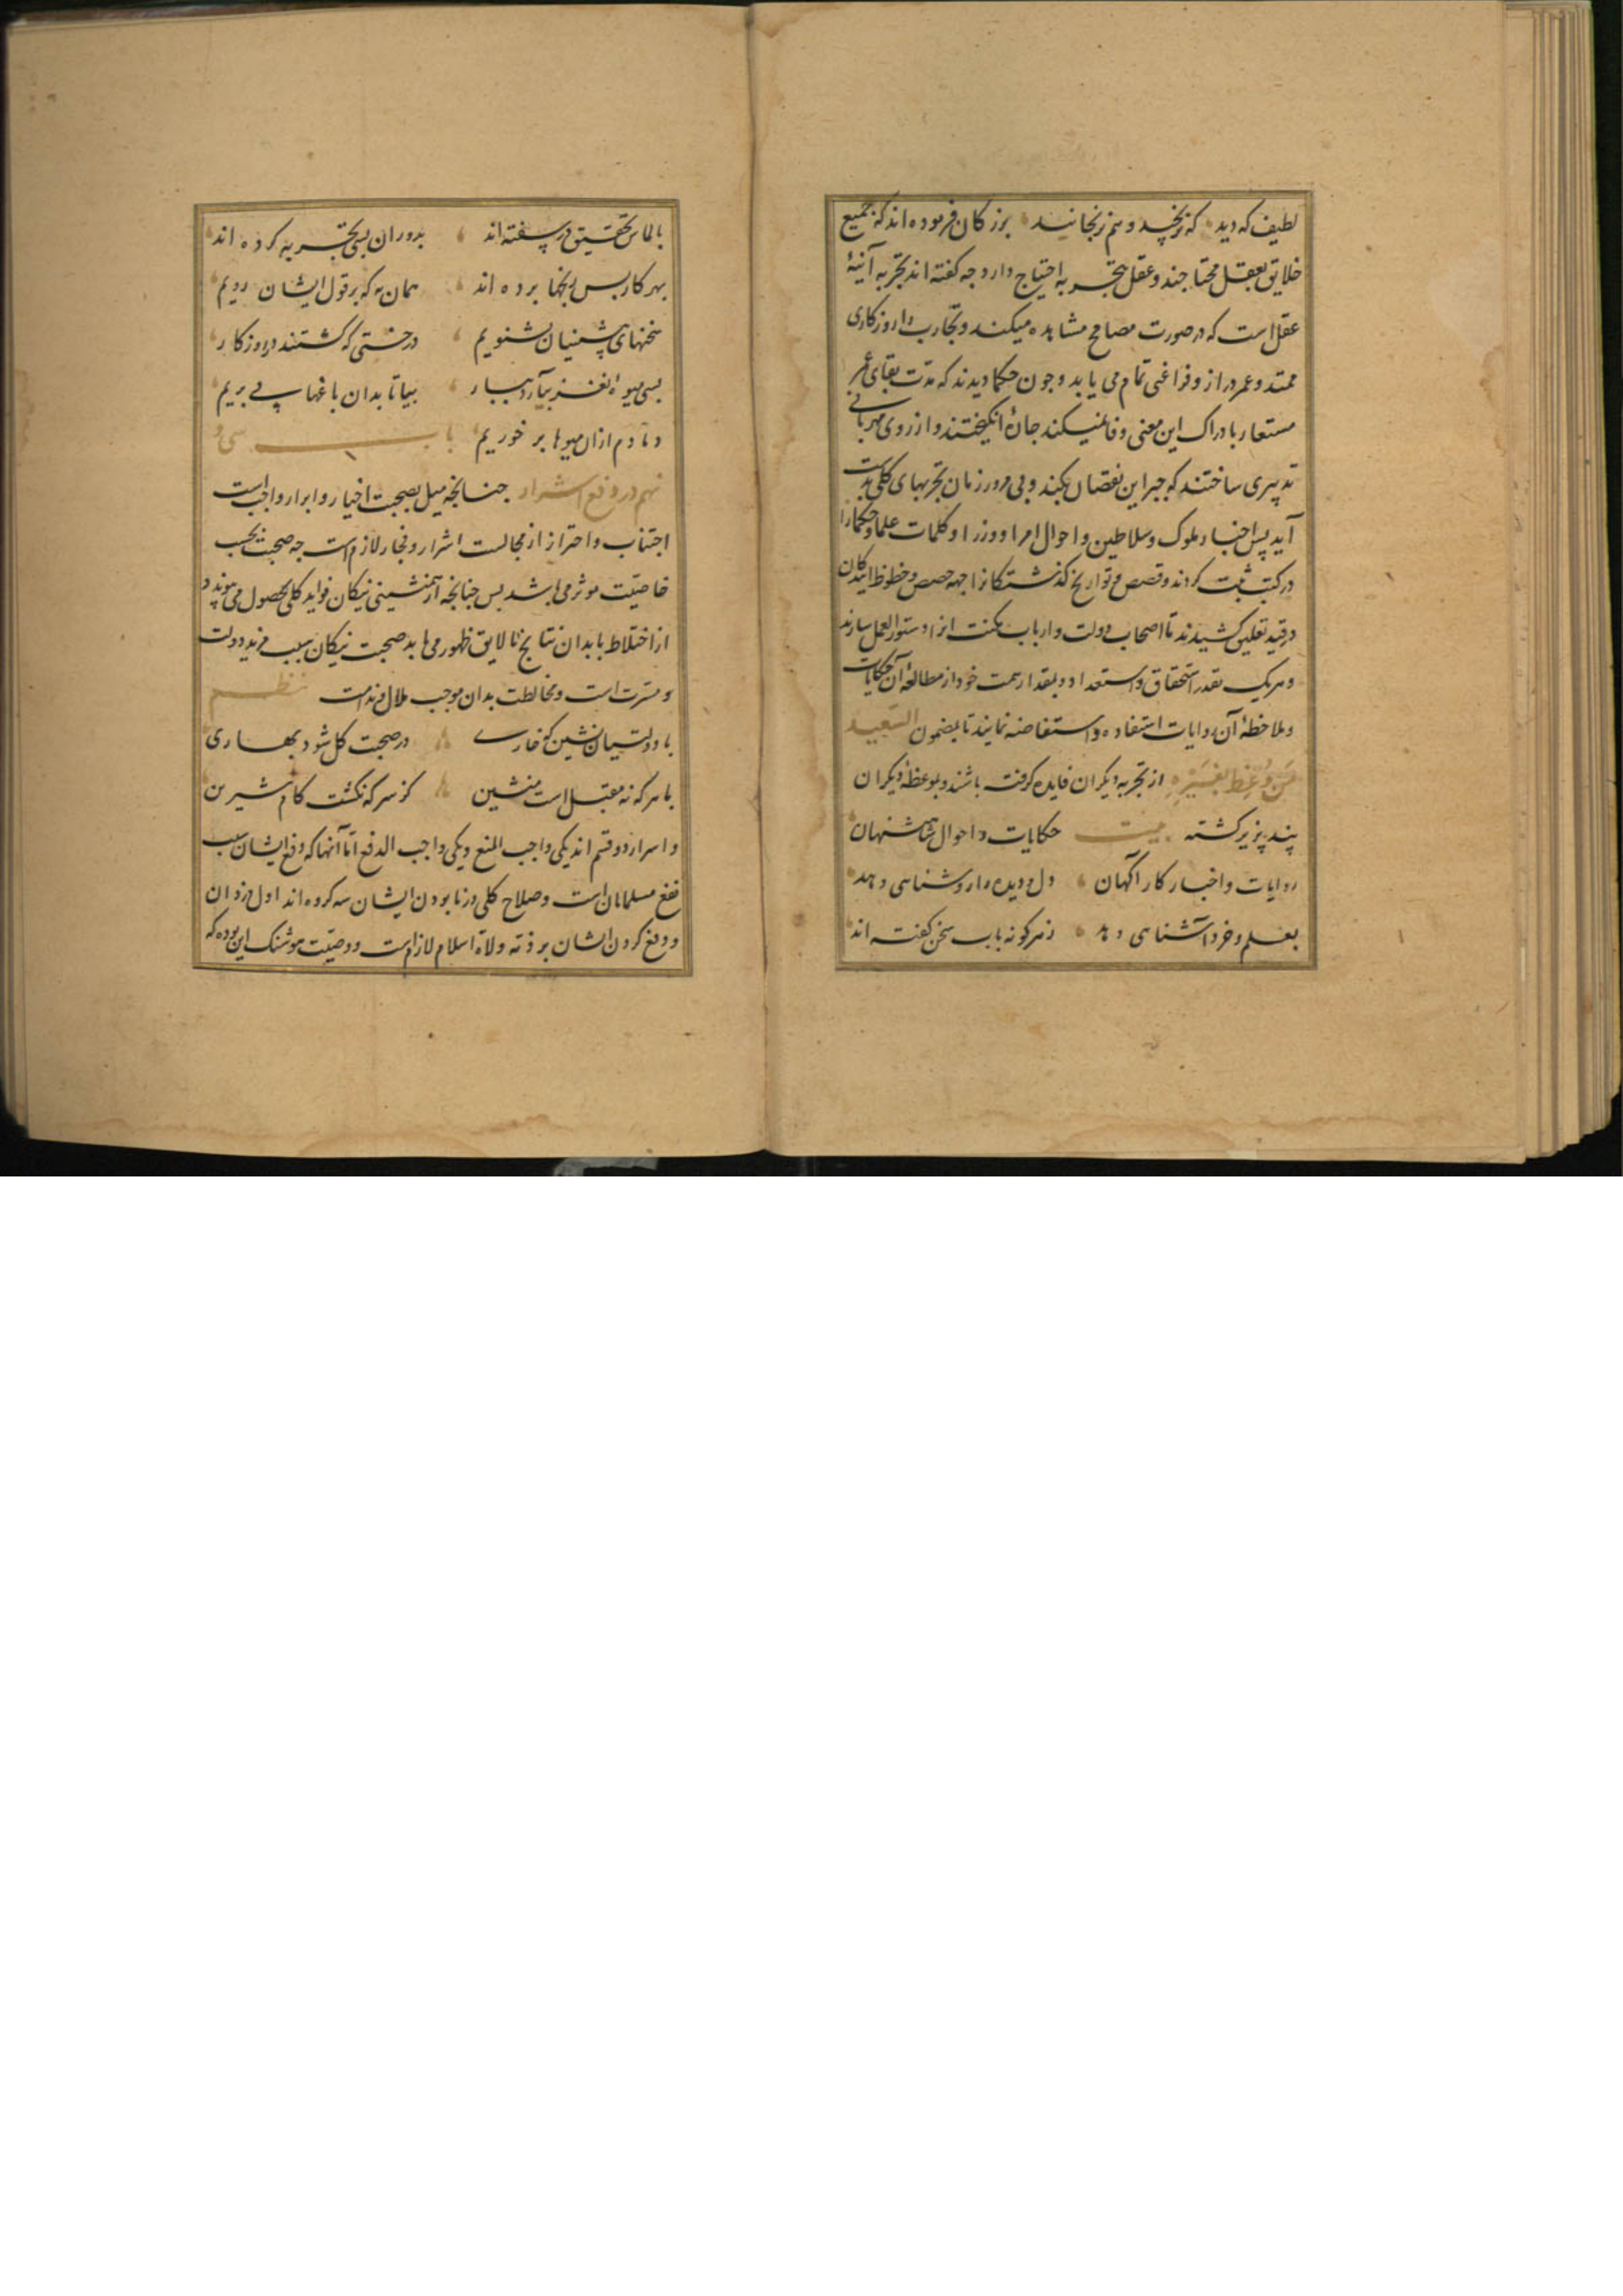 لطیف که دید که نرنجید و هم نرنجانید بزرکان فرموده اند که جمیع
خلایق بعقل محتاجند و عقل بتجربه احتیاج دارد چه کفته اند تجربه آئینهٔ
عقل است که در صورت مصالح مشاهده میکنند و تجارب را روزکاری
ممتد و عمر دراز و فراغی تمام می باید و چون حکما دیدند که مدت بقای عمر
مستعار بادراک این معنی وفا نمیکند جارهٔ انکیختند و از روی مهربانی
تدبیری ساختند که جبر این نقصان بکند و بی مرور زمان تجربهای کلی بدست
آید پس اخبار ملوک و سلاطین و احوال امرا و وزرا و کلمات علما و حکما را
در کتب ثبت کردند و قصص و تواریخ کذشتکانرا جهه حصص و حظوظ آیندکان
در قید تعلیق کشیدند تا اصحاب دولت و ارباب مکنت انرا دستور العمل سازند
و هریک بقدر استحقاق و استعداد و بمقدار همت خود از مطالعهٔ آن حکایات
و ملاحظهٔ آن روایات استفاده و استفاضه نمایند تا بمضمون السّعید
مَن وُعِظَ بغَیْرِهِ از تجربه دیکران فایده کرفته باشند و بموعظهٔ دیکران
پند پزیر کشته بیت حکایات و احوال شاهنشهان
روایات و اخبار کار آکهان دل و دیده را روشنایی دهد
بعلم و خرد آشنایی دهد ز هرکونه باب سخن کفته اند
بالماس تحقیق در سفته اند بدوران بسی تجربه کرده اند
بهر کار بس رنجها برده اند همان به که بر قول ایشان رویم
سخنهای پیشینیان بشنویم درختی که کشتند در روزکار
بسی میوهٔ نغز بیآرد ببار بیا تا بدان باغها پی بریم
دمادم ازان میوها بر خوریم باب سی و
نهم در دفع اشرار جنانجه میل بصحبت اخیار و ابرار واجب است
اجتناب و احتراز از مجالست اشرار و فجار لازم است جه صحبت بحسب
خاصیّت موثر می باشد بس جنانجه از همنشینی نیکان فواید کلی بحصول می پیوندد
از اختلاط با بدان نتایج نالایق ظهور می یابد صحبت نیکان سبب مزید دولت
و مسّرت است و مخالطت بدان موجب ملال و ندامت نظم
با دولتیان نشین که خارے در صحبت کل شود بهاری
با هر که نه مقبل است منشین کز سرکه نکشت کام شیرین
و اسرار دو قسم اند یکی واجب المنع و یکی واجب الدفع امّا آنها که دفع ایشان سبب
نفع مسلمانان است و صلاح کلی در نابودن ایشان سه کروه اند اول دزدان
و دفع کردن ایشان بر ذمّه ولاة اسلام لازم است و وصیّت هوشنک این بوده که